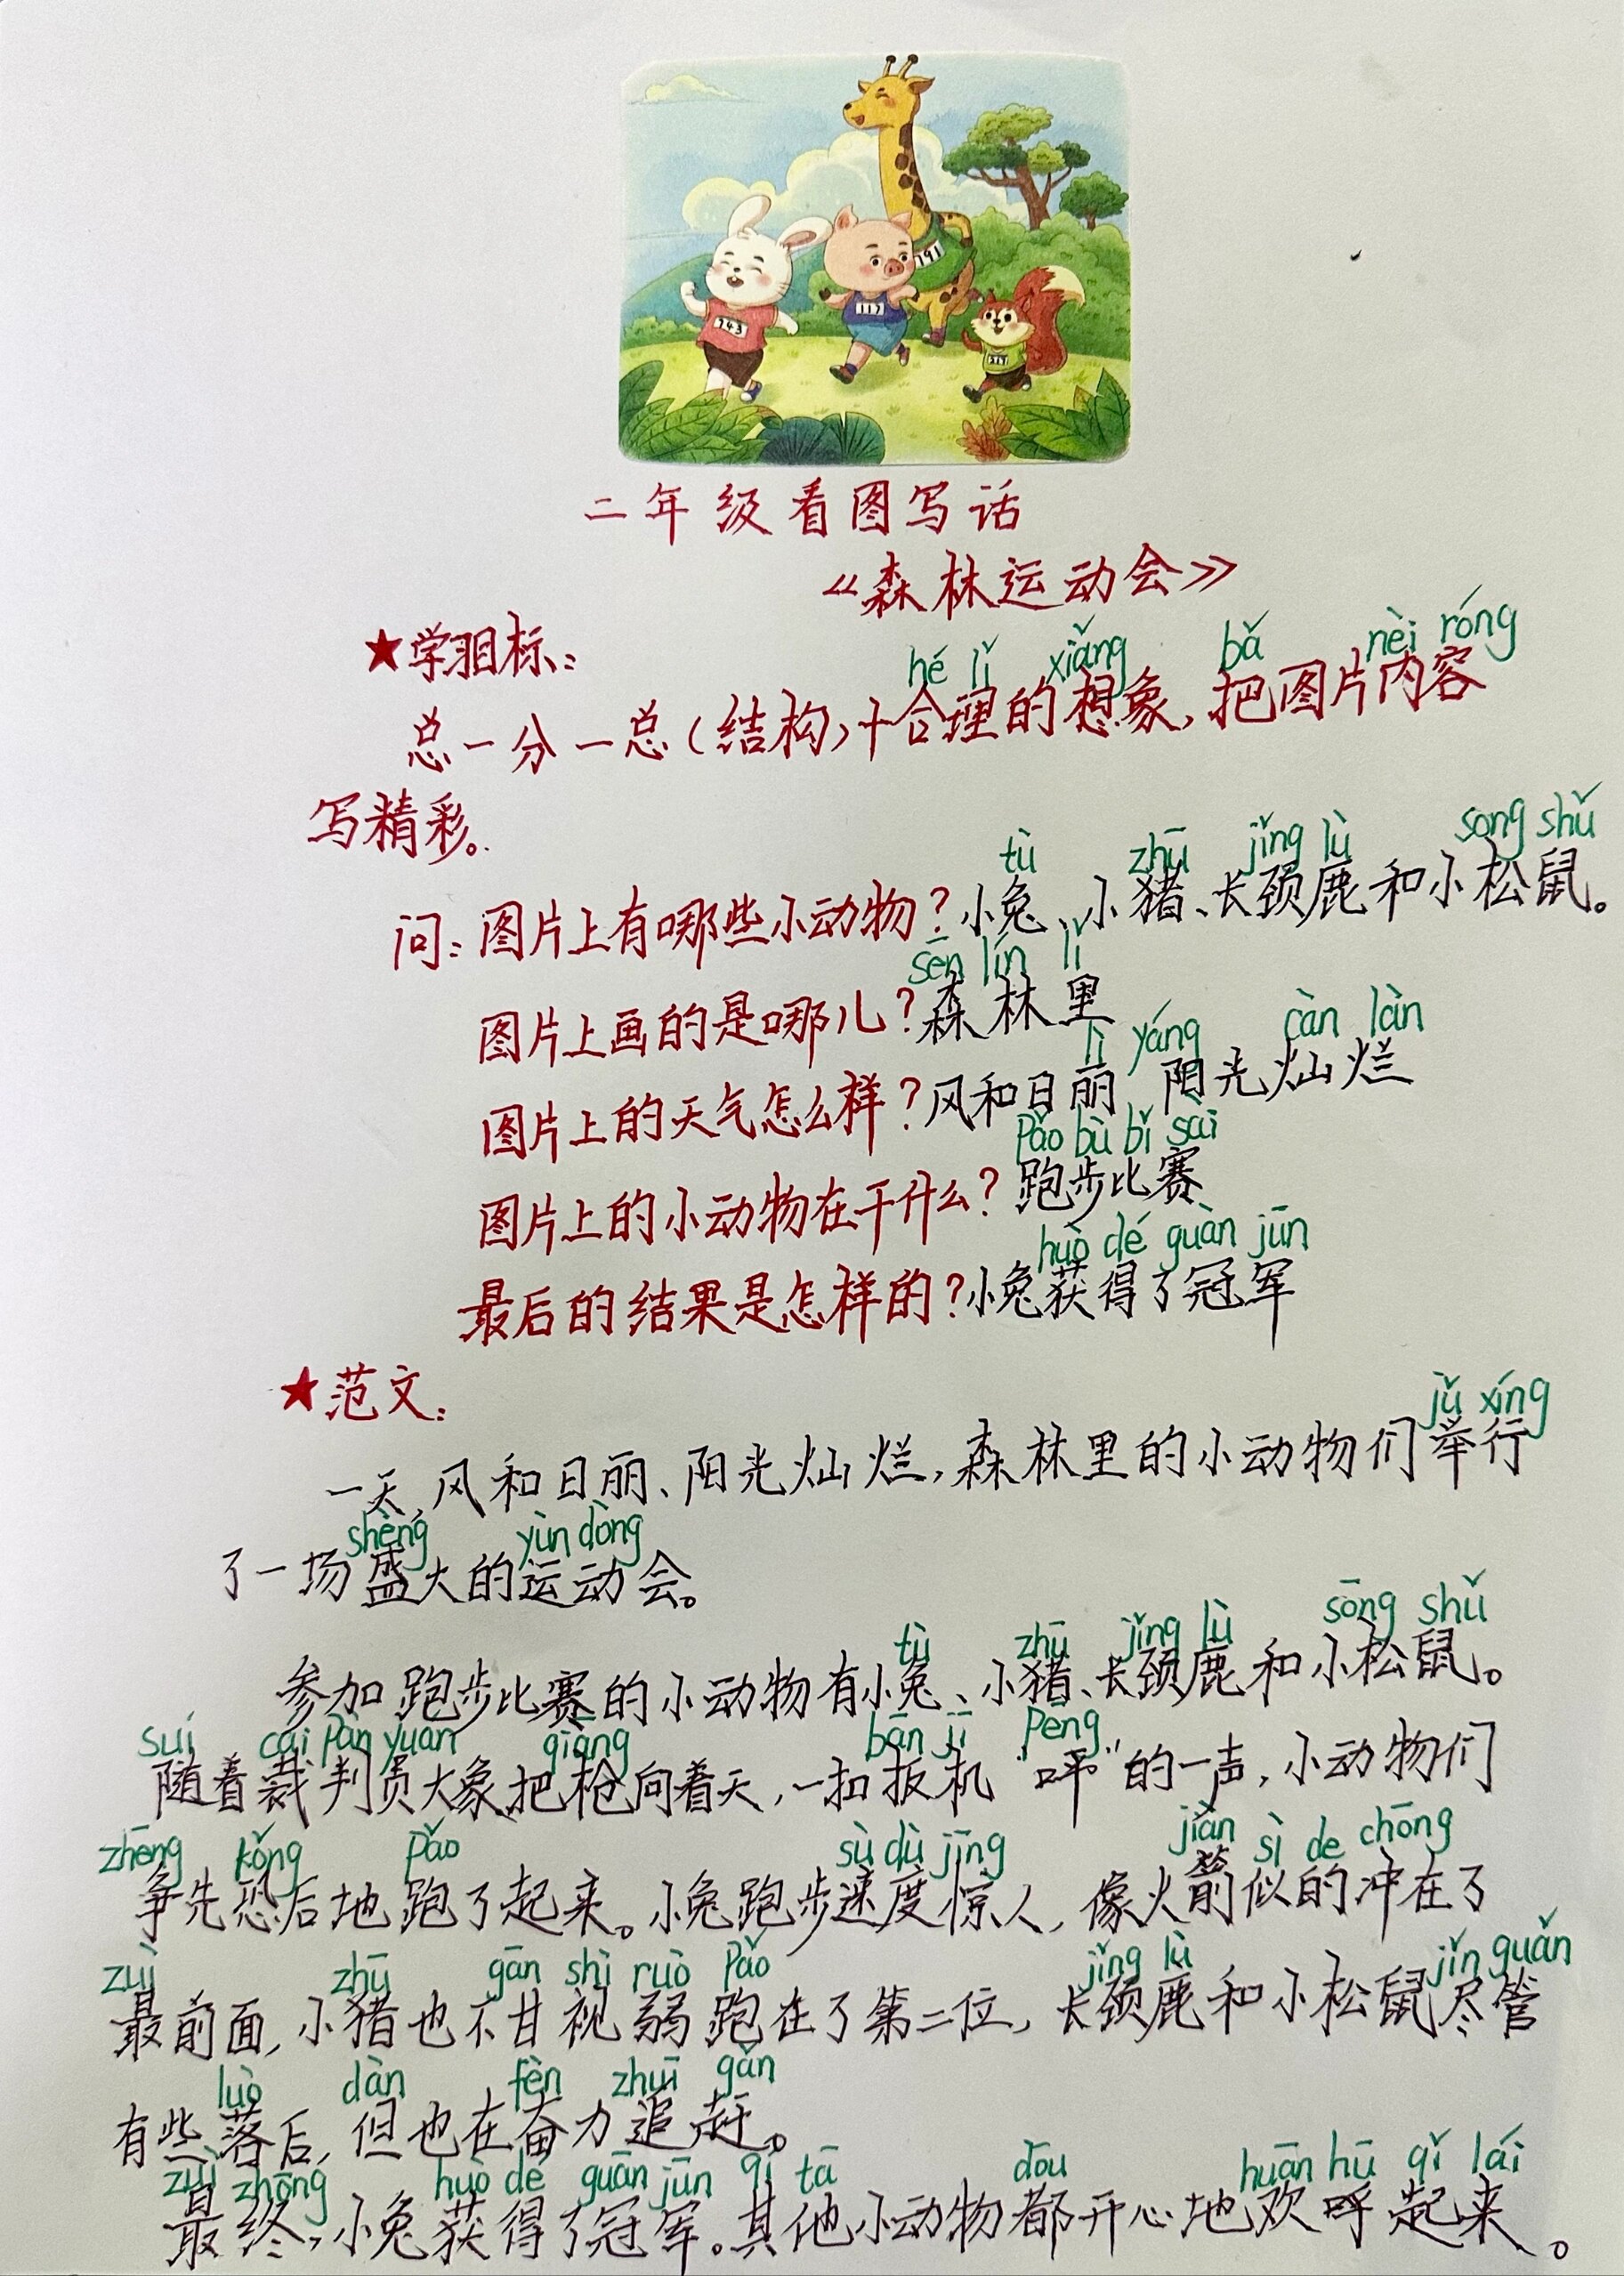 191
743
117
二年级看图写话
《森林运动会》
★学习目标：
hé lǐ xiǎng bǎ nèi róng
总一分一总(结构)+合理的想象,把图片内容
写精彩。
tù zhū jǐng lù song shǔ
问：图片上有哪些小动物？小兔、小猪、长颈鹿和小松鼠。
sēn lín lǐ
图片上画的是哪儿？森林里
lì yáng càn làn
图片上的天气怎么样？风和日丽 阳光灿烂
pǎo bù bǐ sài
图片上的小动物在干什么？跑步比赛
huò dé guàn jūn
最后的结果是怎样的？小兔获得了冠军
★范文：
jǔ xíng
一天,风和日丽、阳光灿烂,森林里的小动物们举行
shèng yùn dòng
了一场盛大的运动会。
tù zhū jǐng lù sōng shǔ
参加跑步比赛的小动物有小兔、小猪、长颈鹿和小松鼠。
suí cái pàn yuán qiāng bān jī pēng
随着裁判员大象把枪向着天,一扣扳机“呯”的一声,小动物们
zhēng kǒng pǎo sù dù jīng jiàn sì de chōng
争先恐后地跑了起来。小兔跑步速度惊人,像火箭似的冲在了
zuì zhū gān shì ruò pǎo jǐng lù jǐn guǎn
最前面,小猪也不甘视弱跑在了第二位,长颈鹿和小松鼠尽管
luò dàn fèn zhuī gǎn
有些落后,但也在奋力追赶。
zuì zhōng huò dé guàn jūn qí tā dōu huān hū qǐ lái
最终,小兔获得了冠军。其他小动物都开心地欢呼起来。